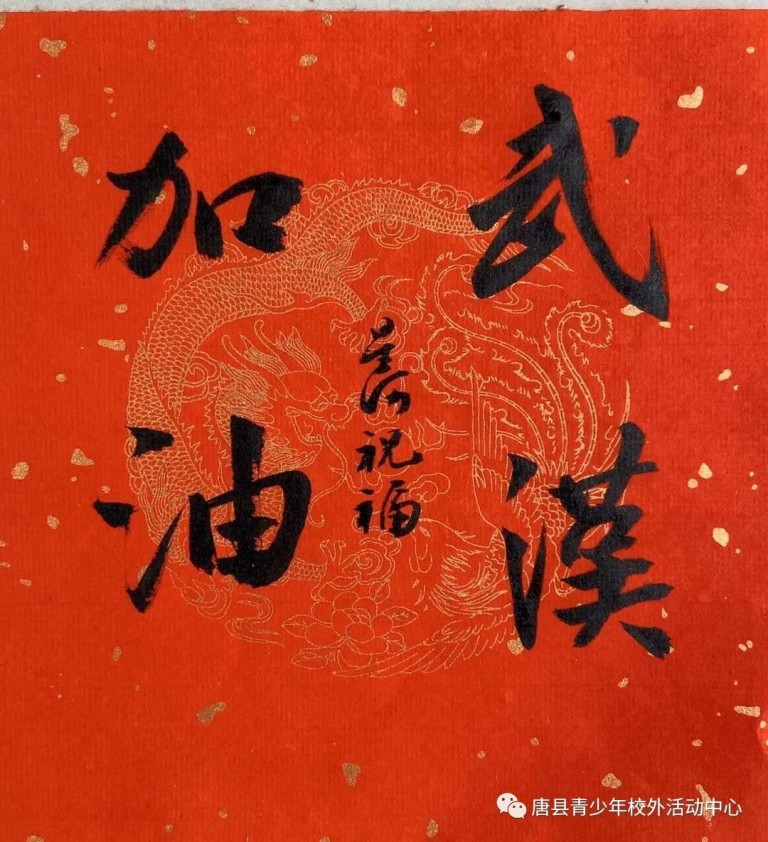 武漢
加油
祝福
唐县青少年校外活动中心